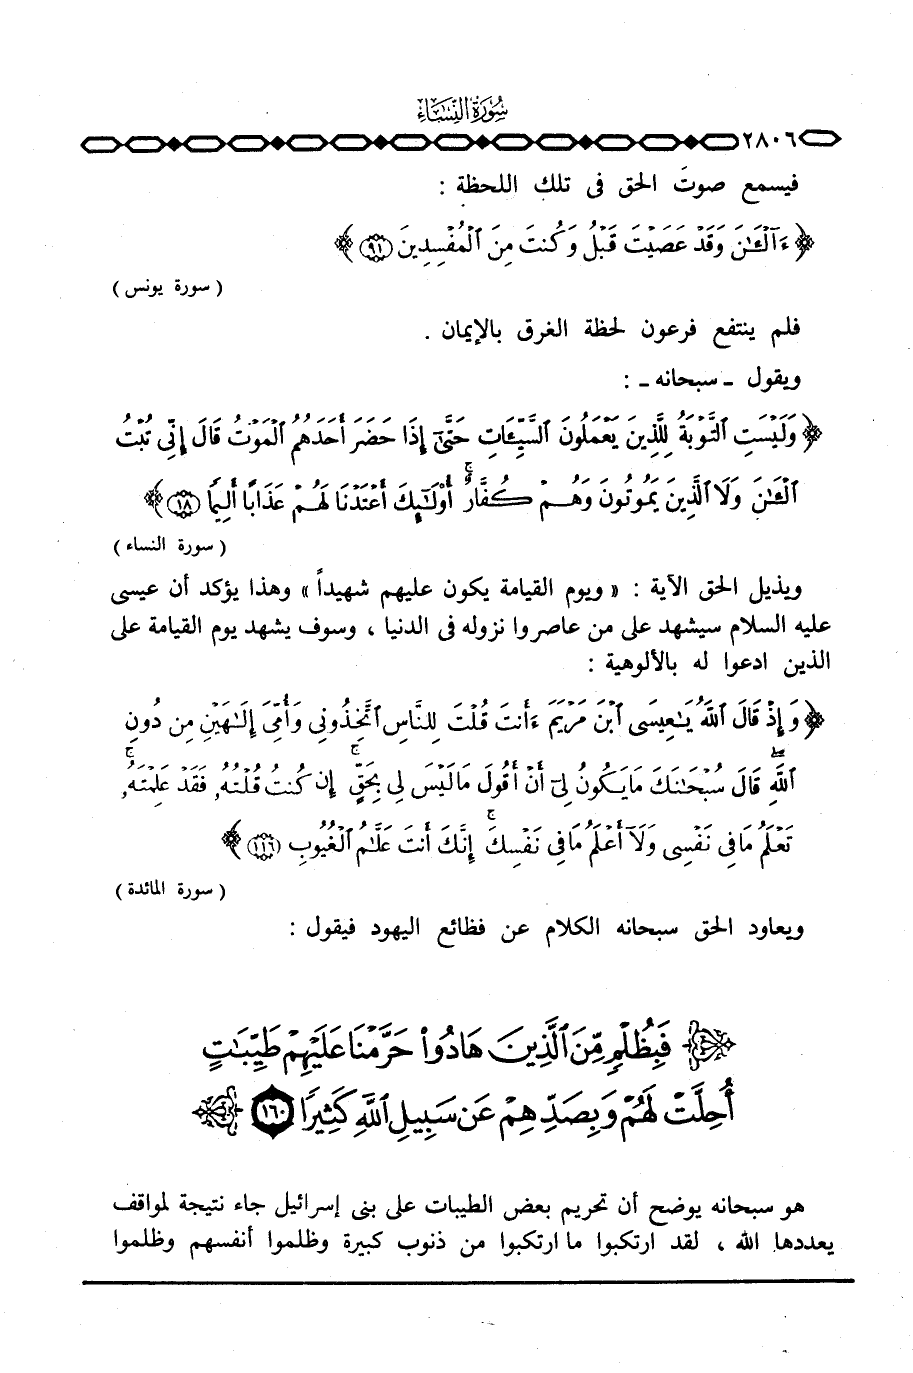 سُورَةُ النِّسَاءِ
٢٨٠٦
فيسمع صوتَ الحق فى تلك اللحظة :
﴿ ءَآلْـَٰٔنَ وَقَدْ عَصَيْتَ قَبْلُ وَكُنتَ مِنَ ٱلْمُفْسِدِينَ (٩١) ﴾
( سورة يونس )
فلم ينتفع فرعون لحظة الغرق بالإيمان .
ويقول ـ سبحانه ـ :
﴿ وَلَيْسَتِ ٱلتَّوْبَةُ لِلَّذِينَ يَعْمَلُونَ ٱلسَّيِّـَٔاتِ حَتَّىٰٓ إِذَا حَضَرَ أَحَدَهُمُ ٱلْمَوْتُ قَالَ إِنِّى تُبْتُ
ٱلْـَٰٔنَ وَلَا ٱلَّذِينَ يَمُوتُونَ وَهُمْ كُفَّارٌ ۚ أُوْلَـٰٓئِكَ أَعْتَدْنَا لَهُمْ عَذَابًا أَلِيمًا (١٨) ﴾
( سورة النساء )
ويذيل الحق الآية : « ويوم القيامة يكون عليهم شهيداً » وهذا يؤكد أن عيسى
عليه السلام سيشهد على من عاصروا نزوله فى الدنيا ، وسوف يشهد يوم القيامة على
الذين ادعوا له بالألوهية :
﴿ وَإِذْ قَالَ ٱللَّهُ يَـٰعِيسَى ٱبْنَ مَرْيَمَ ءَأَنتَ قُلْتَ لِلنَّاسِ ٱتَّخِذُونِى وَأُمِّىَ إِلَـٰهَيْنِ مِن دُونِ
ٱللَّهِ ۖ قَالَ سُبْحَـٰنَكَ مَا يَكُونُ لِىٓ أَنْ أَقُولَ مَا لَيْسَ لِى بِحَقٍّ ۚ إِن كُنتُ قُلْتُهُۥ فَقَدْ عَلِمْتَهُۥ ۚ
تَعْلَمُ مَا فِى نَفْسِى وَلَآ أَعْلَمُ مَا فِى نَفْسِكَ ۚ إِنَّكَ أَنتَ عَلَّـٰمُ ٱلْغُيُوبِ (١١٦) ﴾
( سورة المائدة )
ويعاود الحق سبحانه الكلام عن فظائع اليهود فيقول :
﴿ فَبِظُلْمٍ مِّنَ ٱلَّذِينَ هَادُوا۟ حَرَّمْنَا عَلَيْهِمْ طَيِّبَـٰتٍ
أُحِلَّتْ لَهُمْ وَبِصَدِّهِمْ عَن سَبِيلِ ٱللَّهِ كَثِيرًا (١٦٠) ﴾
هو سبحانه يوضح أن تحريم بعض الطيبات على بنى إسرائيل جاء نتيجة لمواقف
يعددها الله ، لقد ارتكبوا ما ارتكبوا من ذنوب كبيرة وظلموا أنفسهم وظلموا